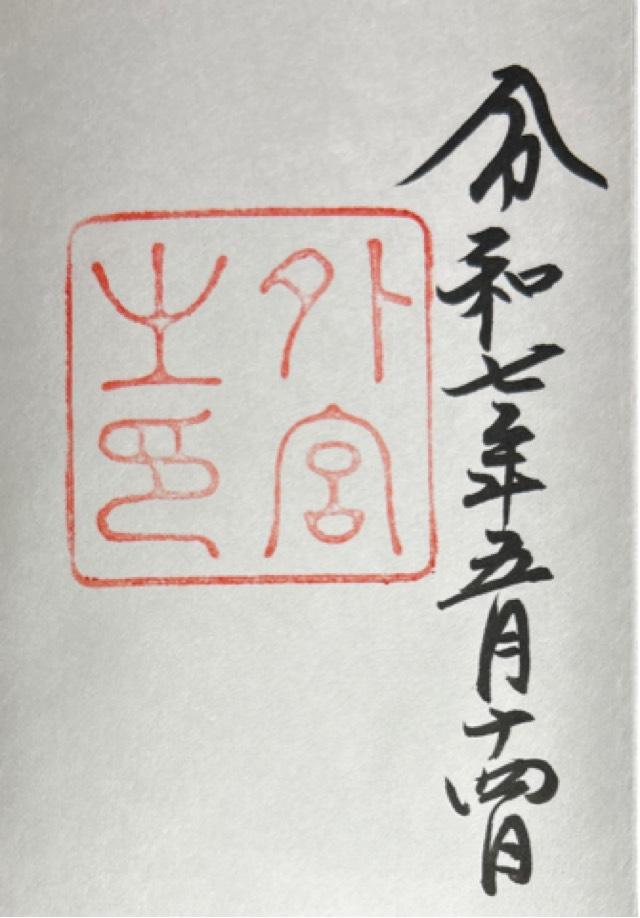 令和七年五月十四日
外宮
之印